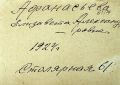 Афанасьева
Елизавета Александ-
ровна
1924.
Столярная 61